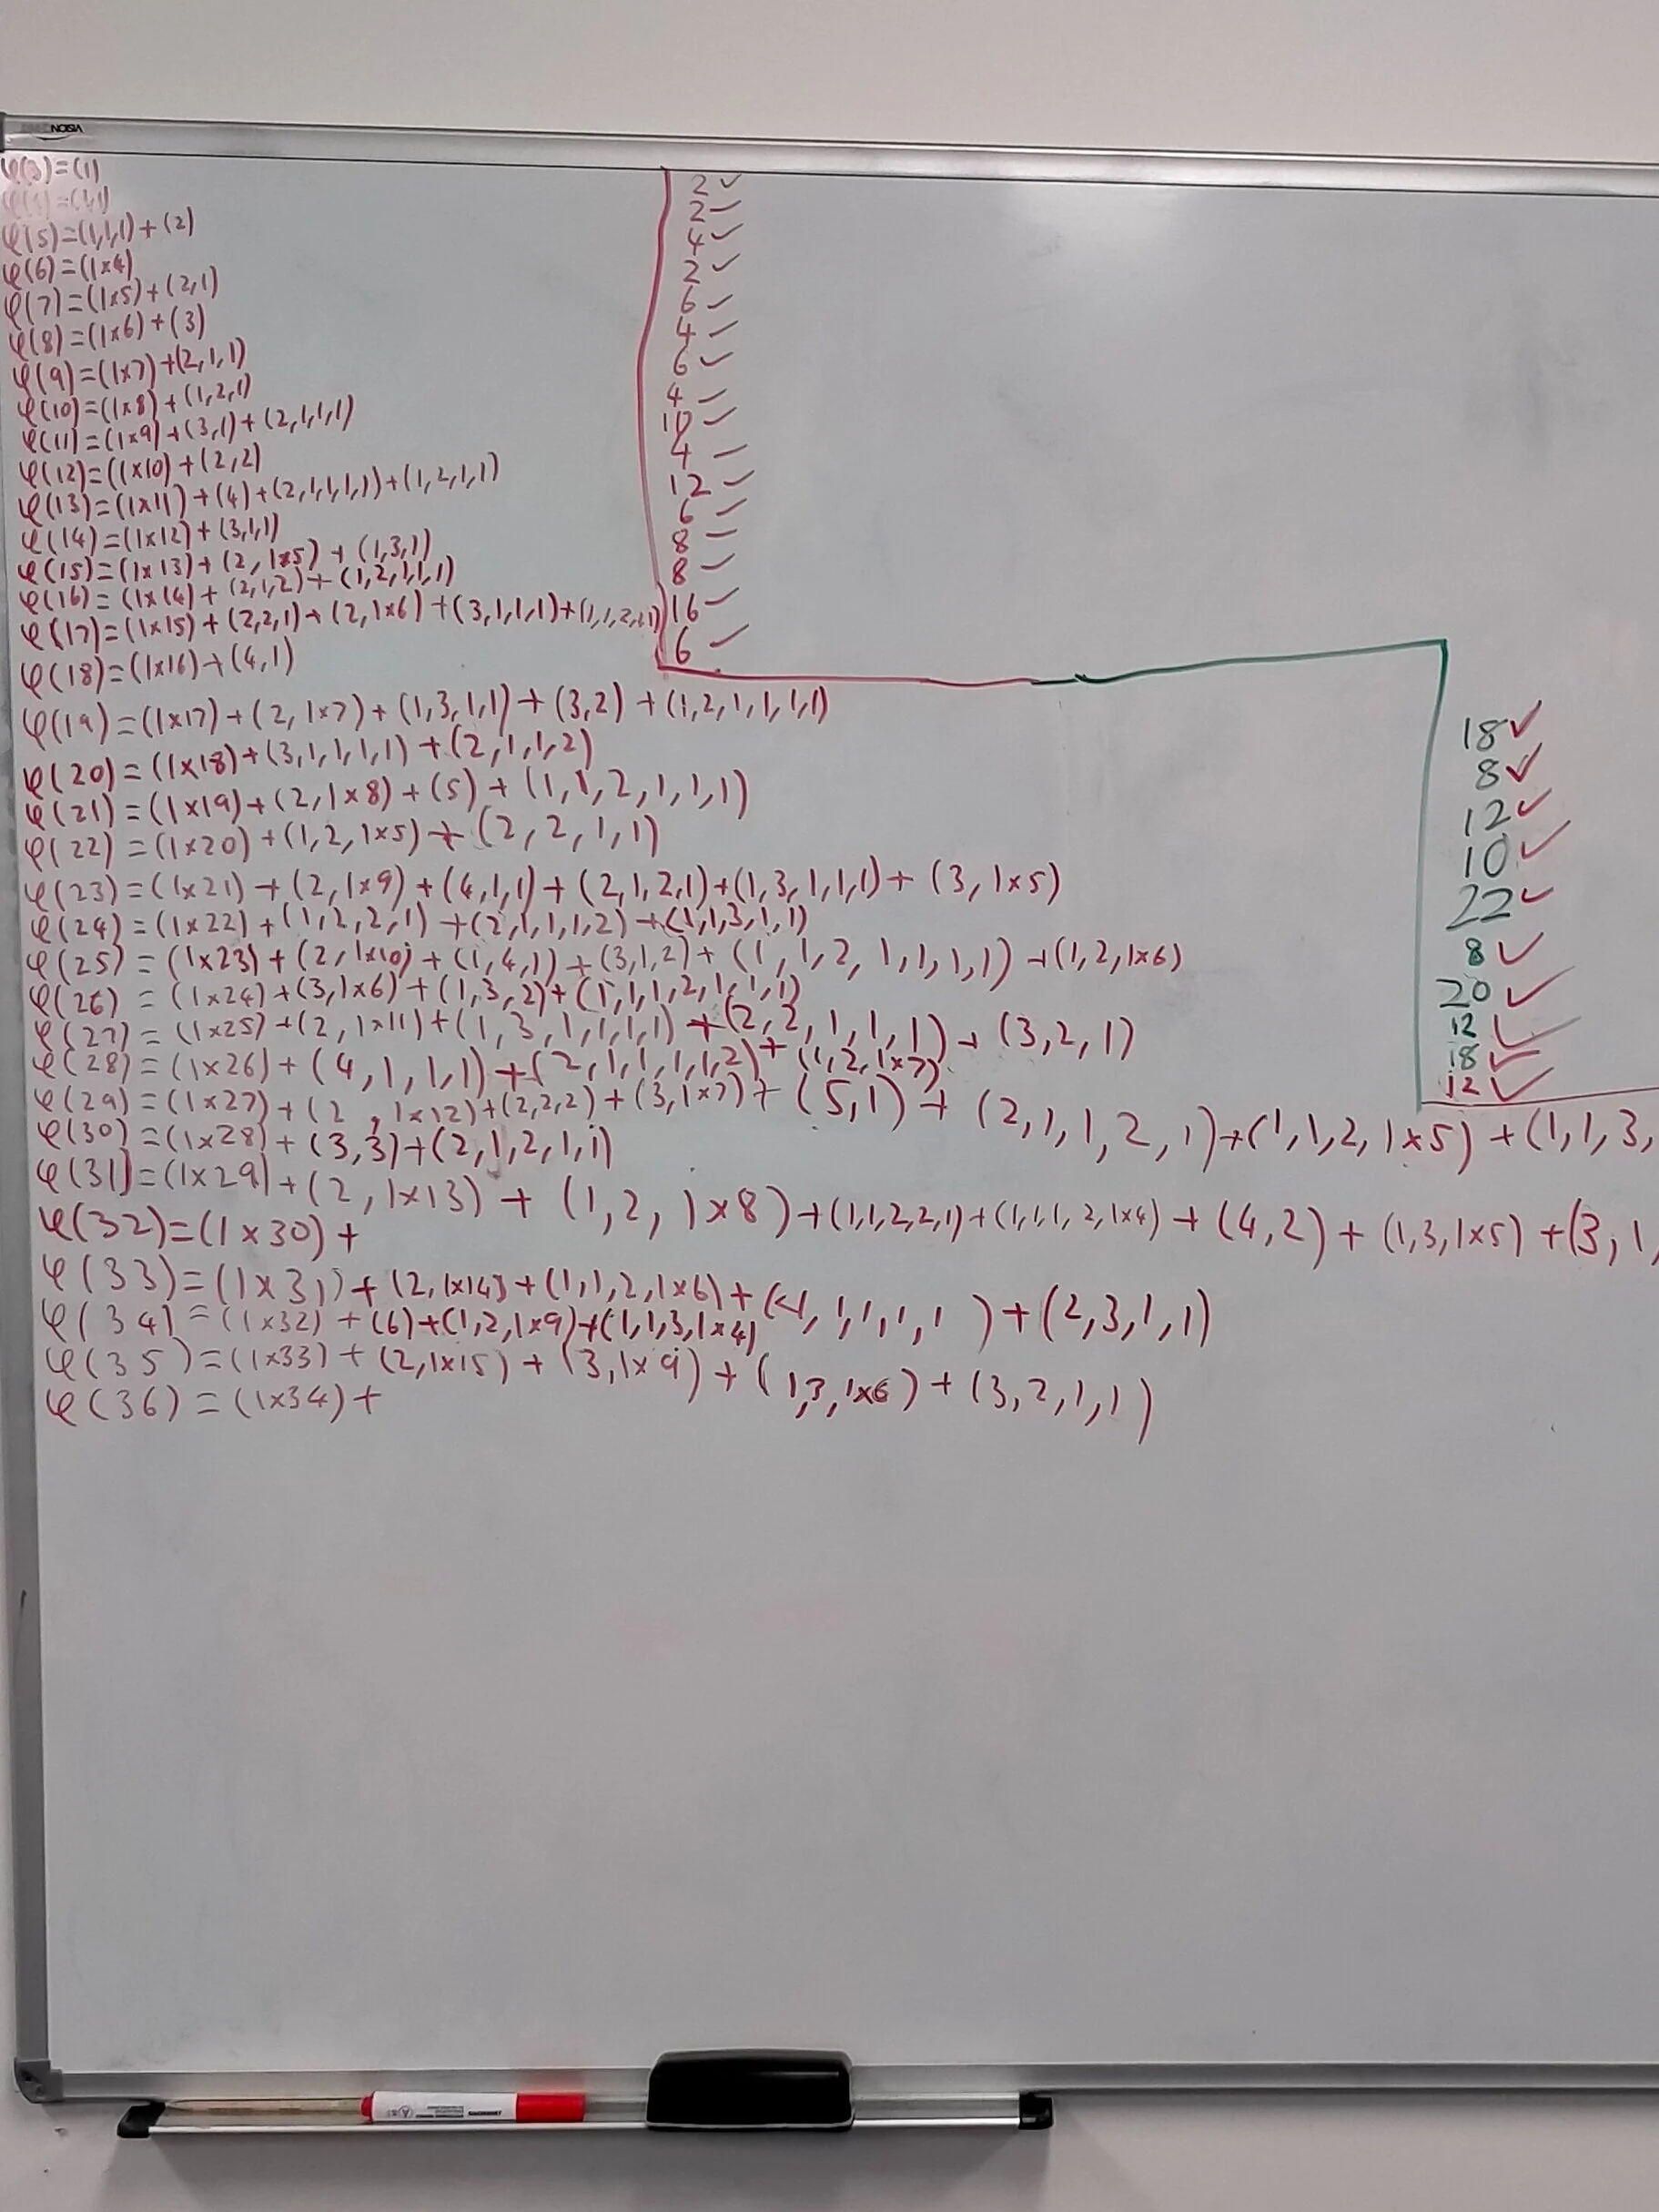 VISION
φ(3)=(1)
φ(4)=(1,1)
φ(5)=(1,1,1)+(2)
φ(6)=(1×4)
φ(7)=(1×5)+(2,1)
φ(8)=(1×6)+(3)
φ(9)=(1×7)+(2,1,1)
φ(10)=(1×8)+(1,2,1)
φ(11)=(1×9)+(3,1)+(2,1,1,1)
φ(12)=(1×10)+(2,2)
φ(13)=(1×11)+(4)+(2,1,1,1,1)+(1,2,1,1)
φ(14)=(1×12)+(3,1,1)
φ(15)=(1×13)+(2,1×5)+(1,3,1)
φ(16)=(1×14)+(2,1,2)+(1,2,1,1,1)
φ(17)=(1×15)+(2,2,1)+(2,1×6)+(3,1,1,1)+(1,1,2,1,1)
φ(18)=(1×16)+(4,1)
2✓
2✓
4✓
2✓
6✓
4✓
6✓
4✓
10✓
4✓
12✓
6✓
8✓
8✓
16✓
6✓
φ(19)=(1×17)+(2,1×7)+(1,3,1,1)+(3,2)+(1,2,1,1,1,1)
φ(20)=(1×18)+(3,1,1,1,1)+(2,1,1,2)
φ(21)=(1×19)+(2,1×8)+(5)+(1,1,2,1,1,1)
φ(22)=(1×20)+(1,2,1×5)+(2,2,1,1)
φ(23)=(1×21)+(2,1×9)+(4,1,1)+(2,1,2,1)+(1,3,1,1,1)+(3,1×5)
φ(24)=(1×22)+(1,2,2,1)+(2,1,1,1,2)+(1,1,3,1,1)
φ(25)=(1×23)+(2,1×10)+(1,4,1)+(3,1,2)+(1,1,2,1,1,1,1)+(1,2,1×6)
φ(26)=(1×24)+(3,1×6)+(1,3,2)+(1,1,1,2,1,1,1)
φ(27)=(1×25)+(2,1×11)+(1,3,1,1,1,1)+(2,2,1,1,1)+(3,2,1)
φ(28)=(1×26)+(4,1,1,1)+(2,1,1,1,1,2)+(1,2,1×7)
18✓
8✓
12✓
10✓
22✓
8✓
20✓
12✓
18✓
12✓
φ(29)=(1×27)+(2,1×12)+(2,2,2)+(3,1×7)+(5,1)+(2,1,1,2,1)+(1,1,2,1×5)+(1,1,3,
φ(30)=(1×28)+(3,3)+(2,1,2,1,1)
φ(31)=(1×29)+(2,1×13)+(1,2,1×8)+(1,1,2,2,1)+(1,1,1,2,1×4)+(4,2)+(1,3,1×5)+(3,1,
φ(32)=(1×30)+
φ(33)=(1×31)+(2,1×14)+(1,1,2,1×6)+(4,1,1,1,1)+(2,3,1,1)
φ(34)=(1×32)+(6)+(1,2,1×9)+(1,1,3,1×4)
φ(35)=(1×33)+(2,1×15)+(3,1×9)+(1,3,1×6)+(3,2,1,1)
φ(36)=(1×34)+